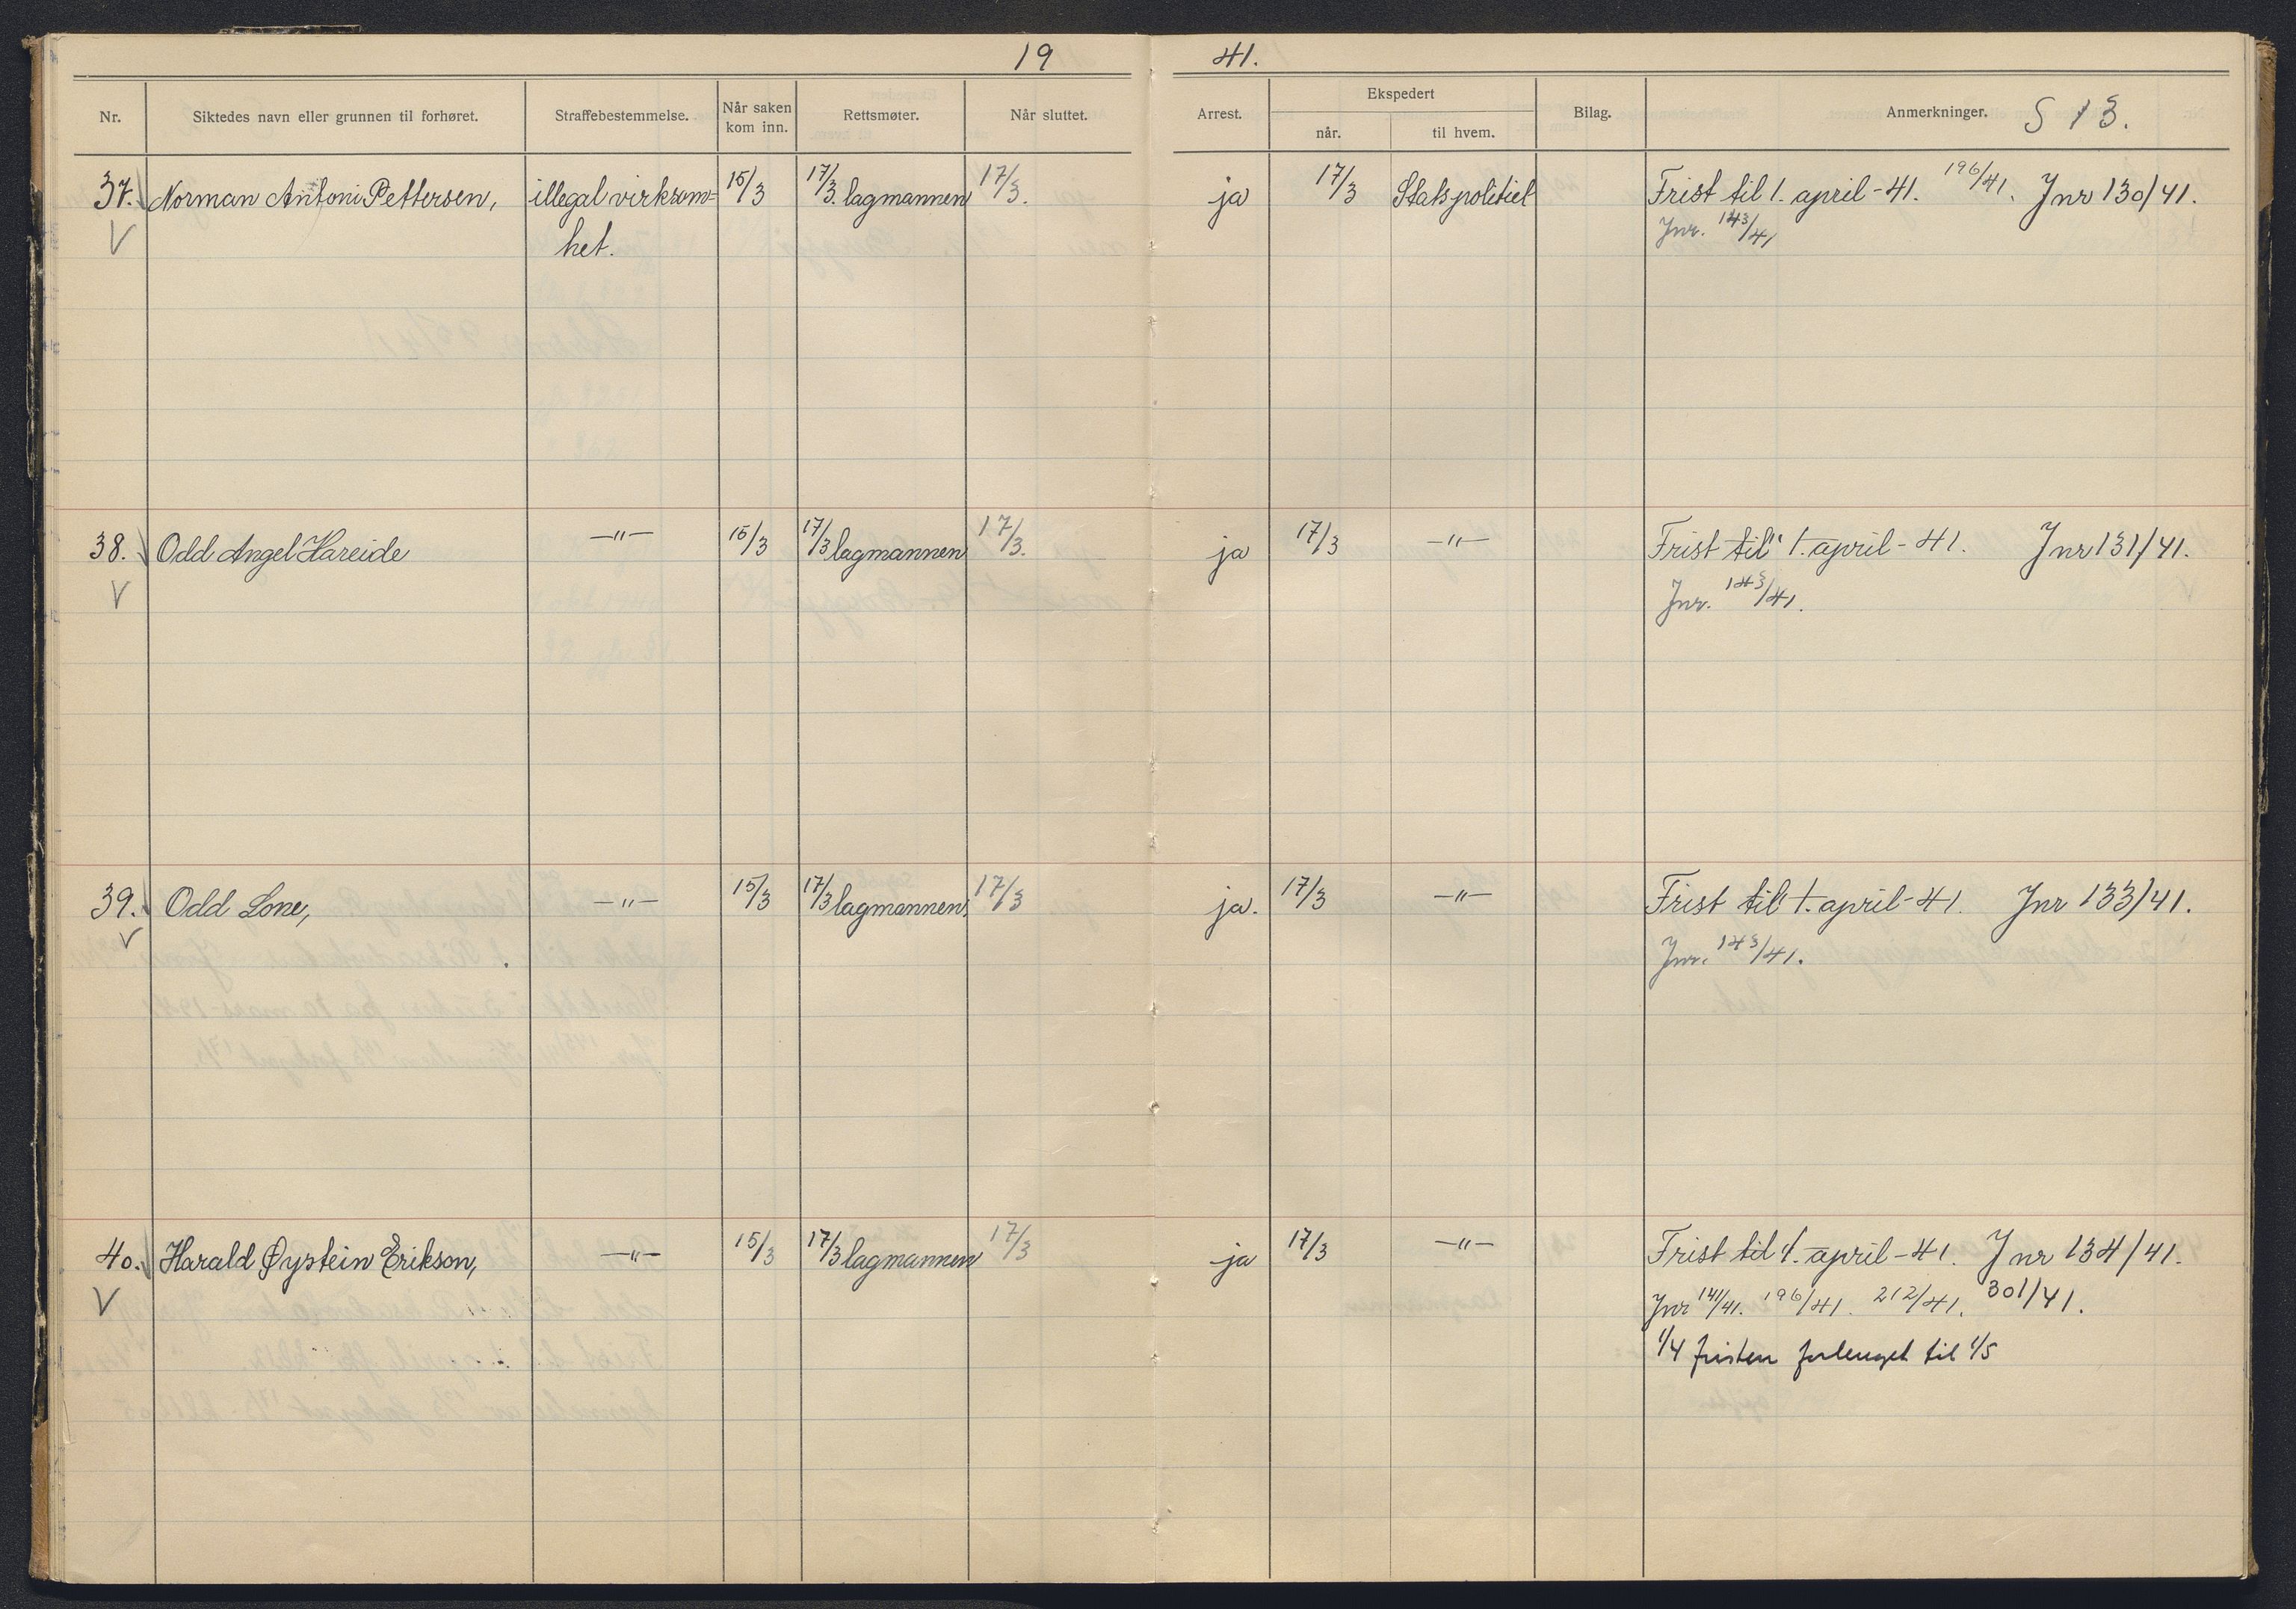 19 41.
Nr. Siktedes navn eller grunnen til forhøret. Straffebestemmelse. Når saken kom inn. Rettsmøter. Når sluttet. Arrest. Ekspedert når. til hvem. Bilag. Anmerkninger. S 13.
37. Norman Antoni Pettersen, illegal virksom- 15/3 17/3. lagmannen 17/3. ja 17/3 Statspolitiet Frist til 1. april - 41. 196/41. Jnr 130/41.
V het. Jnr. 143/41
38. Odd Angel Hareide —"— 15/3 17/3 lagmannen 17/3. ja 17/3 —"— Frist til 1. april - 41. Jnr 131/41.
V Jnr. 143/41.
39. Odd Lone, —"— 15/3 17/3 lagmannen, 17/3 ja. 17/3 —"— Frist til 1. april - 41. Jnr 133/41.
V Jnr. 143/41.
40. Harald Øystein Erikson, —"— 15/3 17/3 lagmannen 17/3 ja 17/3 —"— Frist til 1. april - 41. Jnr 134/41.
V Jnr 141/41. 196/41. 212/41. 301/41.
1/4 fristen forlenget til 1/5